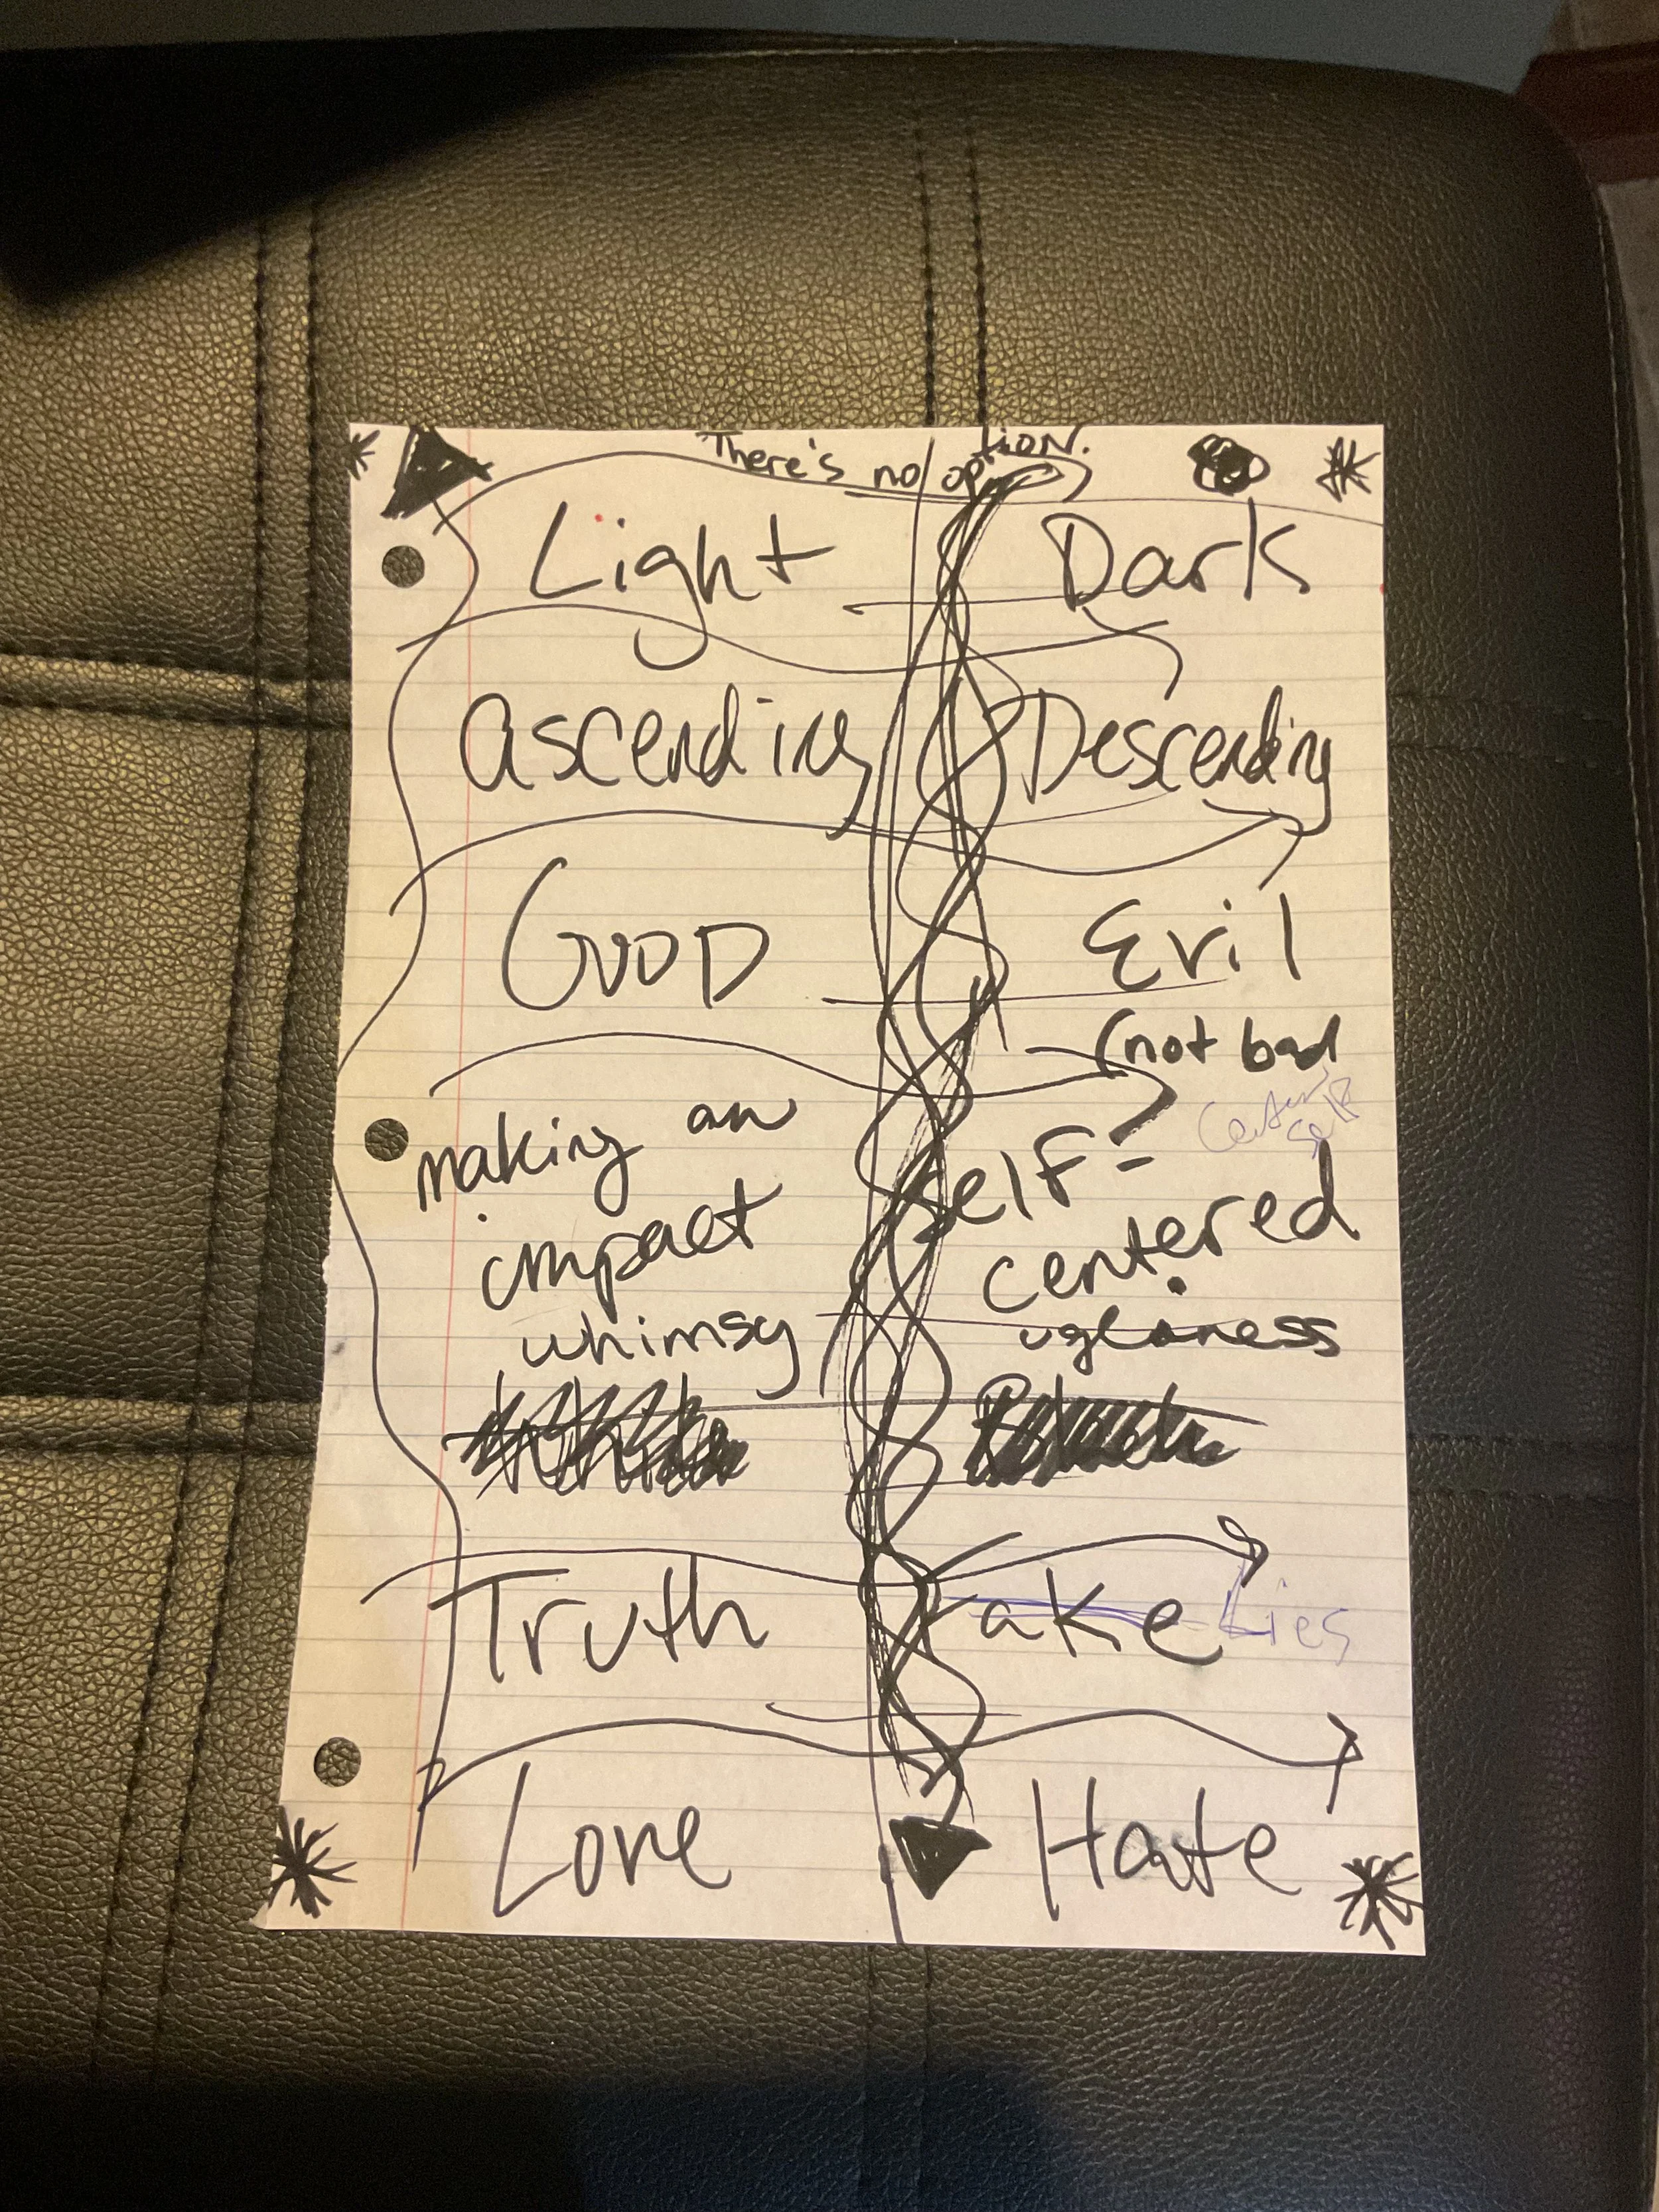 There's no option.
Light Dark
ascending Descending
GOOD Evil
(not bad
making an
impact self-
centered
whimsy
Truth Fake Lies
Love Hate